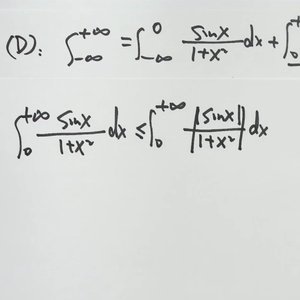 (D): ∫_{-∞}^{+∞} = ∫_{-∞}^{0} \frac{sinx}{1+x²} dx + ∫_{0}
∫_{0}^{+∞} \frac{sinx}{1+x²} dx ≤ ∫_{0}^{+∞} \frac{|sinx|}{|1+x²|} dx